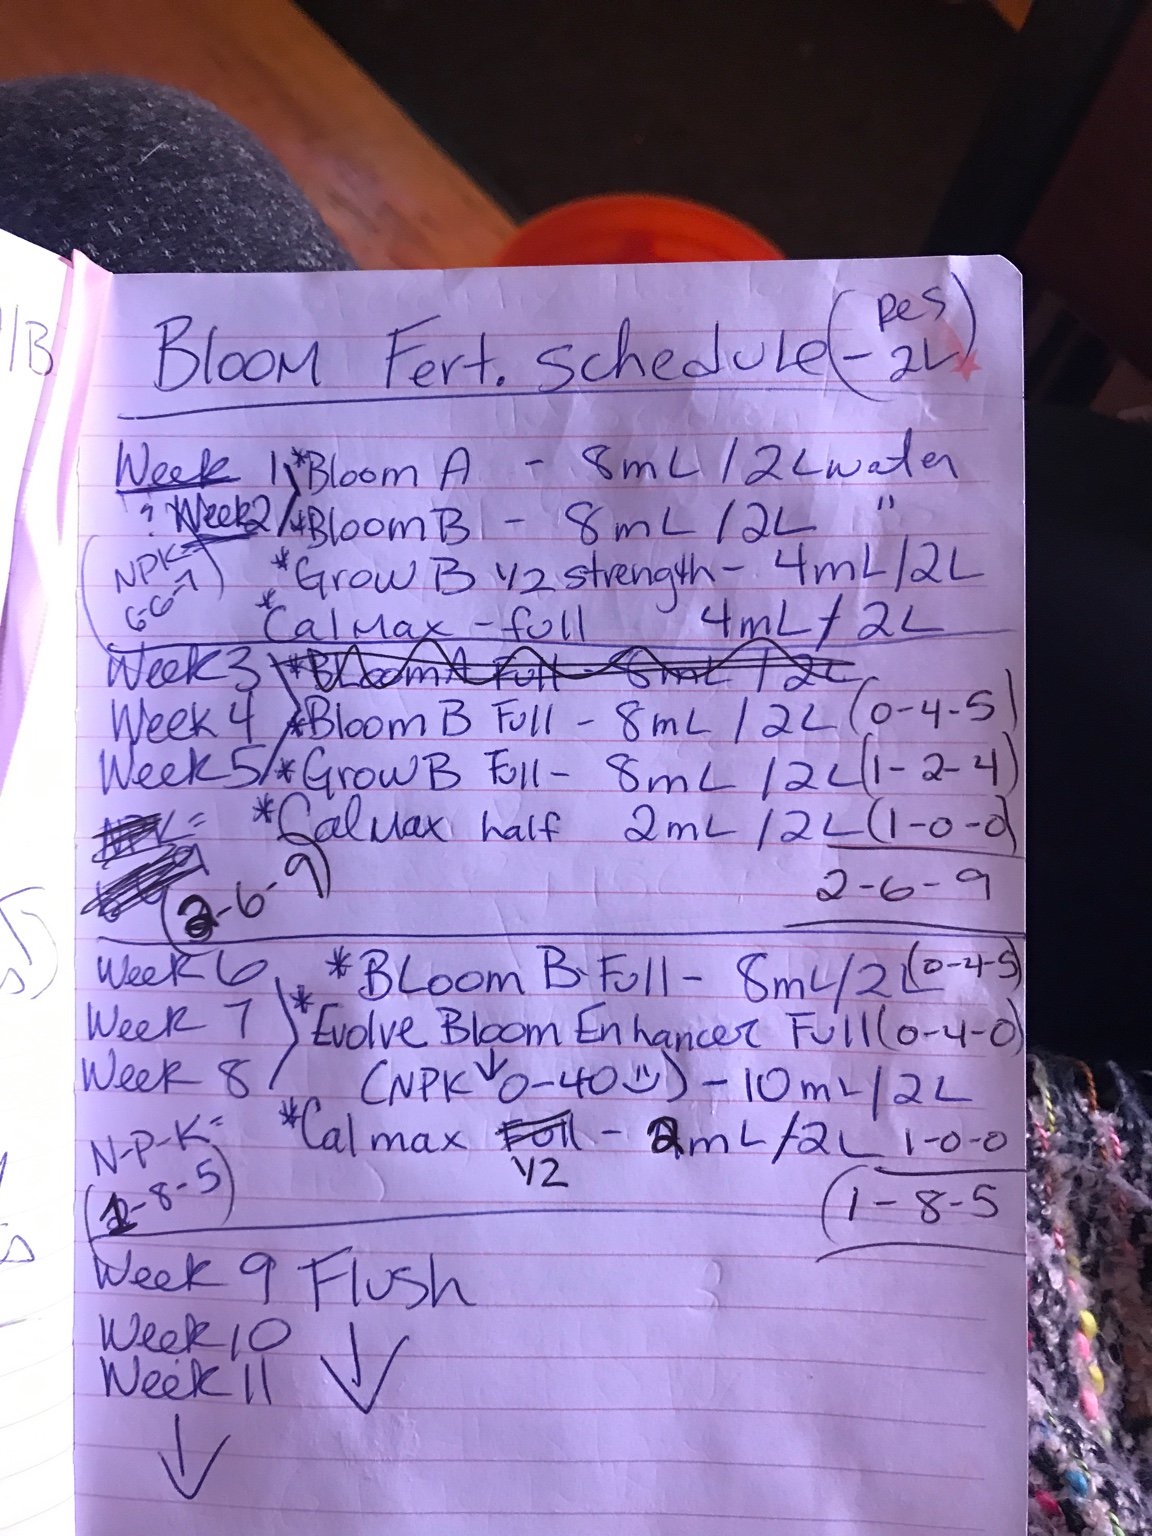 Bloom Fert. Schedule (Res - 2L)
Week 1 *Bloom A - 8mL / 2L water
? Week2 *Bloom B - 8mL / 2L "
NPK= *Grow B 1/2 strength - 4mL/2L
6-6-7
*CalMax - full 4mL / 2L
Week 3 *Bloom A Full - 8mL / 2L
Week 4 *Bloom B Full - 8mL / 2L (0-4-5)
Week 5 *Grow B Full - 8mL / 2L (1-2-4)
NPK= *CalMax half 2mL / 2L (1-0-0)
(2-6-9) 2-6-9
Week 6 *Bloom B Full - 8mL/2L (0-4-5)
Week 7 *Evolve Bloom Enhancer Full (0-4-0)
Week 8 (NPK ↓ 0-40 :) ) - 10mL/2L
N-P-K= *Calmax Full - 2mL/2L 1-0-0
1/2
(1-8-5) (1-8-5
Week 9 Flush
Week 10 ↓
Week 11
↓